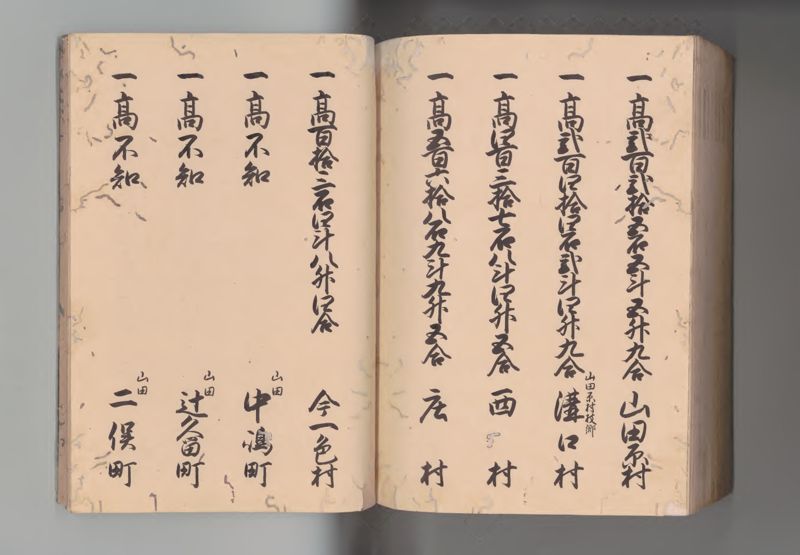 一高弐百弐拾五石五斗五升九合 山田原村
一高弐百四拾四石弐斗四升九合 山田原村枝郷 溝口村
一高四百三拾七石八斗四升五合 西村
一高五百六拾八石九斗九升五合 庄村
一高百拾三石四斗八升四合 今一色村
一高不知 山田 中嶋町
一高不知 山田 辻久留町
一高不知 山田 二俣町